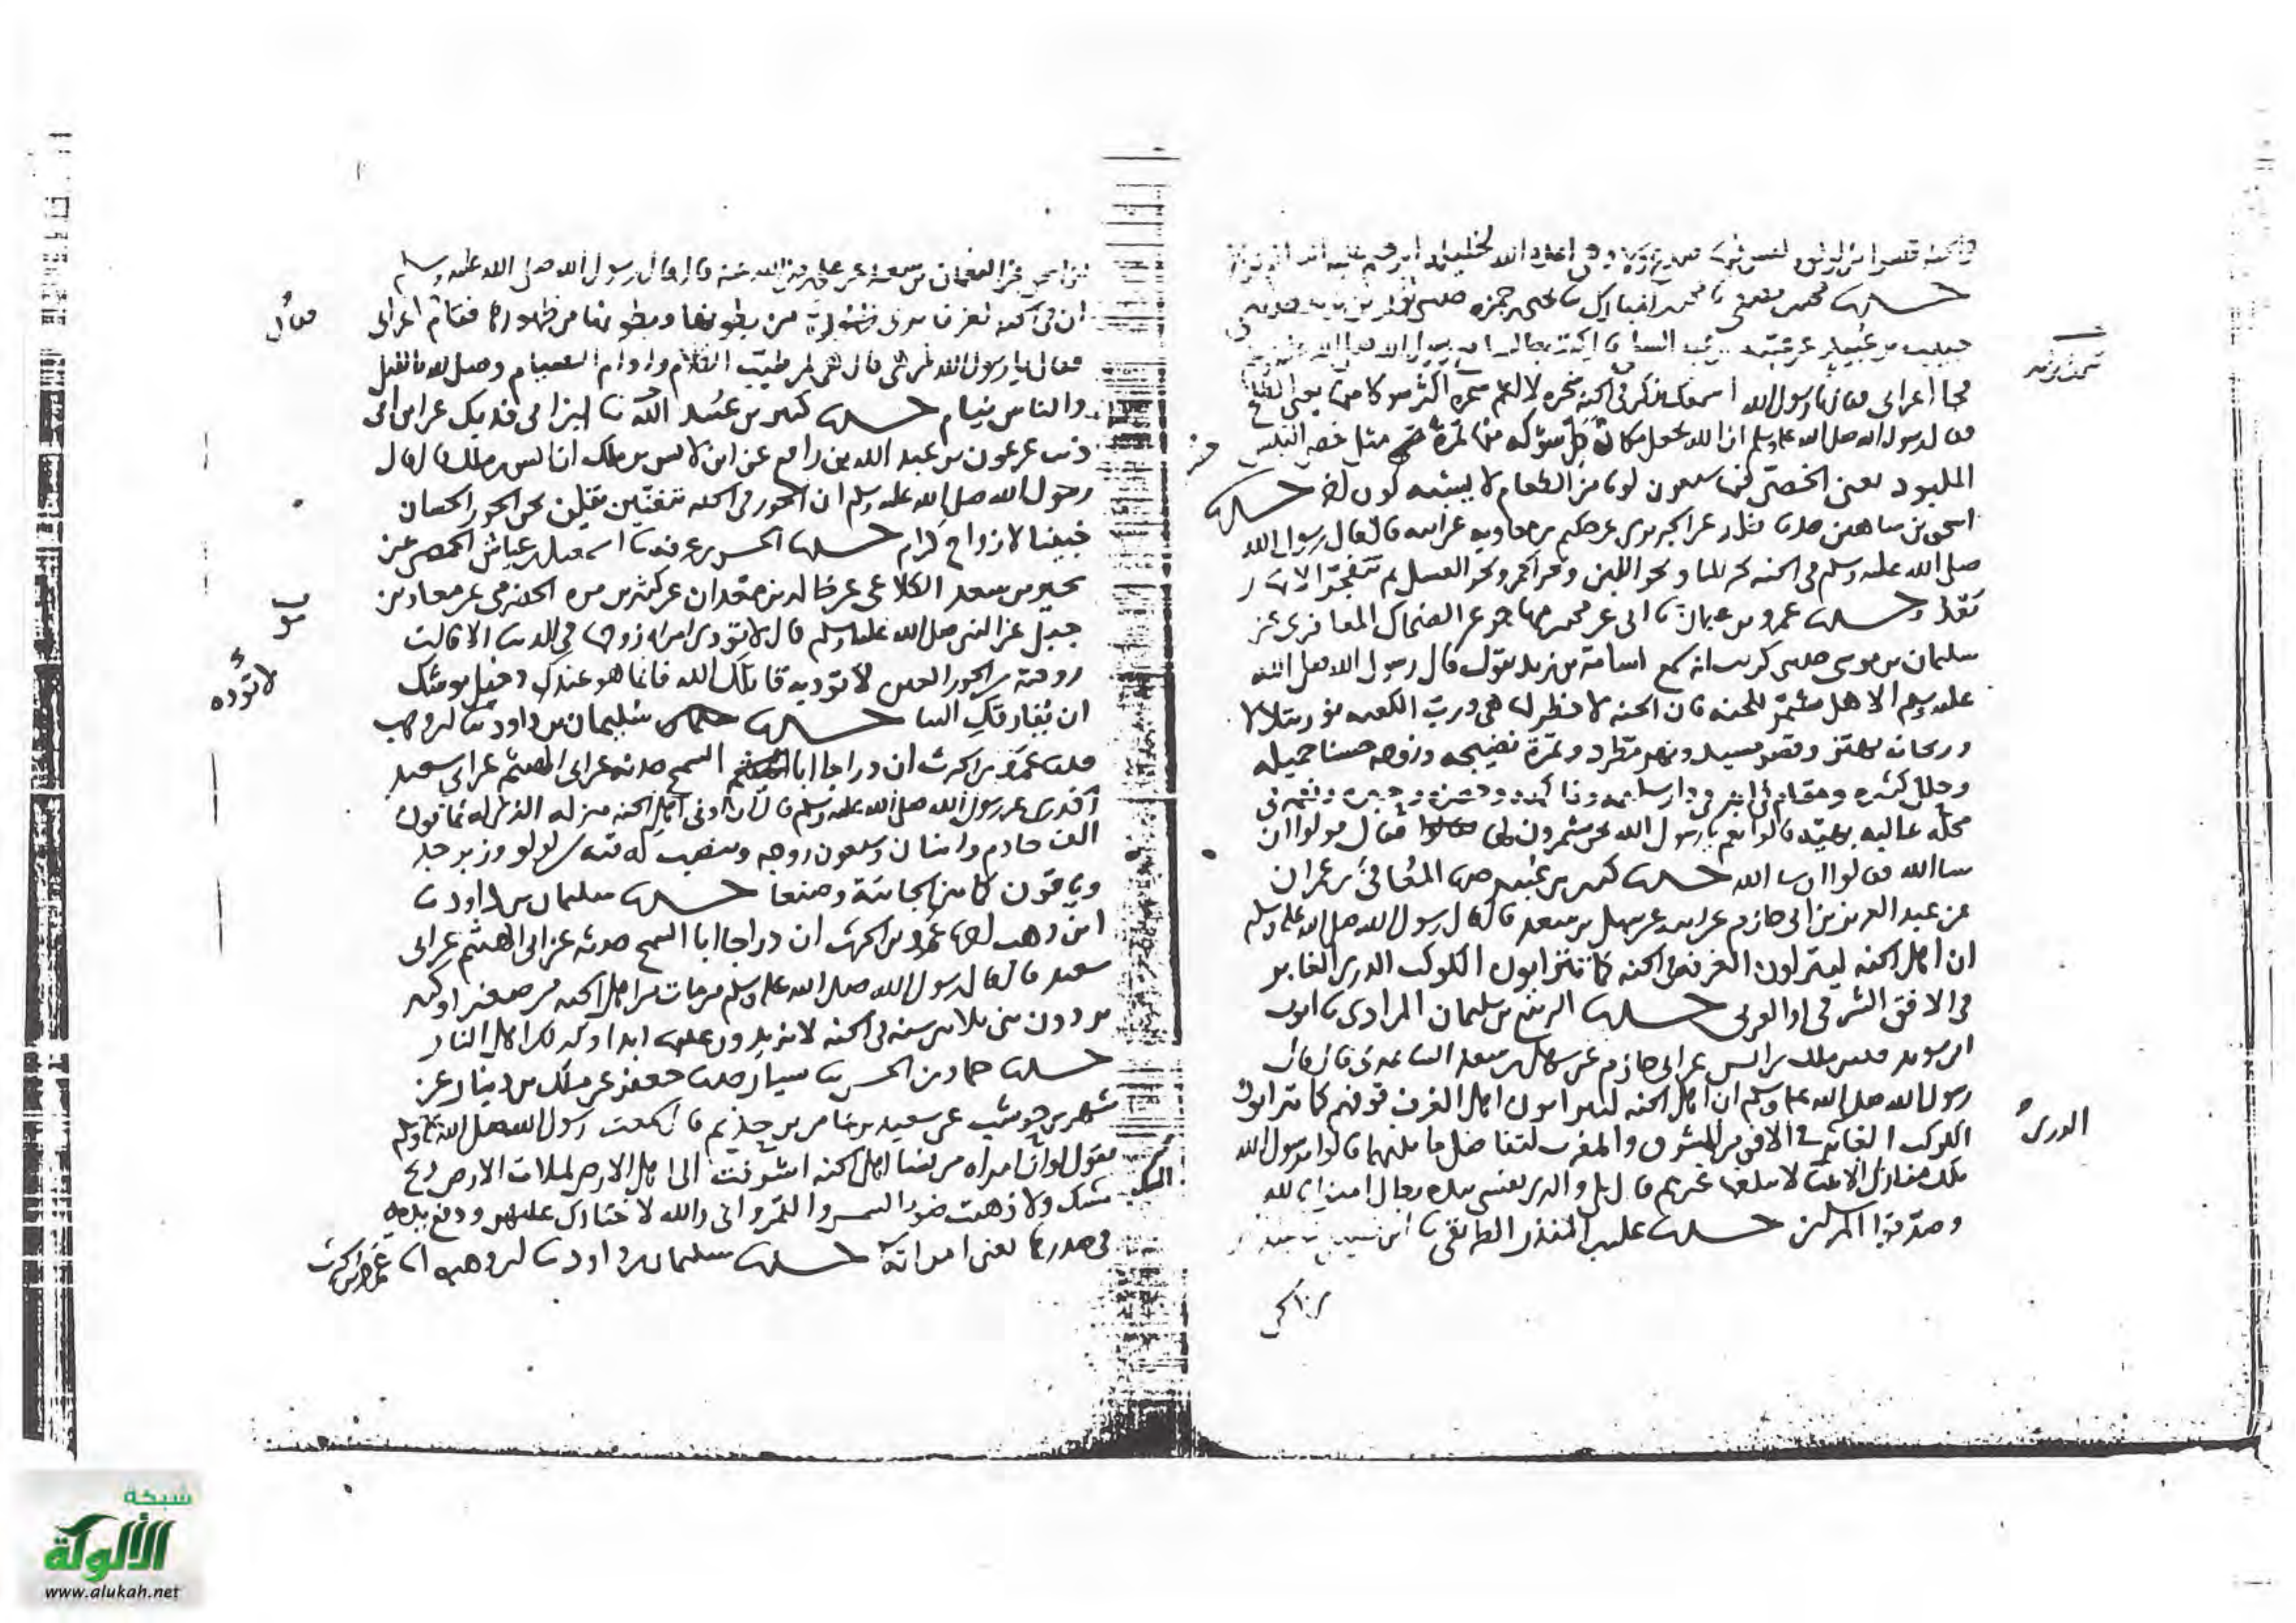 حدثنا محمد بن المصفى نا محمد بن المبارك نا يحيى بن حمزة حدثني ثور بن يزيد حدثني
حبيب بن عبيد عن عتبة بن عبد السلمي قال كنت جالسا مع رسول الله صلى الله عليه وسلم
فجا اعرابي فقال يا رسول الله اسمعك تذكر في الجنة شجرة لا اعلم شجرة اكثر شوكا منها يعني الطلح
فقال رسول الله صلى الله عليه وسلم ان الله يجعل مكان كل شوكة منها ثمرة مثل خصي التيس
الملبود يعني الخصي فيها سبعون لونا من الطعام لا يشبه لون لون حدثنا
اسحق بن شاهين حدثنا خالد عن الجريري عن حكيم بن معاوية عن ابيه قال قال رسول الله
صلى الله عليه وسلم في الجنة بحر للما وبحر اللبن وبحر الخمر وبحر العسل ثم تتفجر الانهار
بعد حدثنا عمرو بن عثمان نا ابي عن محمد بن مهاجر عن الضحاك المعافري عن
سليمان بن موسى حدثني كريب انه سمع اسامة بن زيد يقول قال رسول الله صلى الله
عليه وسلم الا هل مشمر للجنة فان الجنة لا خطر لها هي ورب الكعبة نور يتلالا
وريحانة تهتز وقصر مشيد ونهر مطرد وثمرة نضيجة وزوجة حسنا جميلة
وحلل كثيرة ومقام في ابد في دار سليمة وفاكهة وخضرة وحبرة ونعمة في
محلة عالية بهية قالوا نعم يا رسول الله نحن مشمرون لها فقال قولوا ان
شا الله فقالوا ان شا الله حدثنا كثير بن عبيد حدثنا المعافى بن عمران
عن عبد العزيز بن ابي حازم عن ابيه عن سهل بن سعد قال قال رسول الله صلى الله عليه وسلم
ان اهل الجنة ليتراون الغرف في الجنة كما تتراون الكوكب الدري الغابر
في الافق الشرقي او الغربي حدثنا الربيع بن سليمان المرادي نا ايوب
ابن سويد حدثني ملك بن انس عن ابي حازم عن سهل بن سعد الساعدي قال قال
رسول الله صلى الله عليه وسلم ان اهل الجنة ليتراون اهل الغرف فوقهم كما تتراون
الكوكب الغابر في الافق من المشرق والمغرب لتفاضل ما بينهما قالوا يا رسول الله
تلك منازل الانبيا لا يبلغها غيرهم قال بلى والذي نفسي بيده رجال امنوا بالله
وصدقوا المرسلين حدثنا علي بن المنذر الطريقي نا ابن فضيل
الدري
عبد الرحمن بن اسحق عن النعمان بن سعد عن علي رضي الله عنه قال قال رسول الله صلى الله عليه وسلم
ان في الجنة لغرفا يرى ظهورها من بطونها وبطونها من ظهورها فقام اعرابي
فقال يا رسول الله لمن هي قال هي لمن طيب الكلام وادام الصيام وصلى لله بالليل
والناس نيام حدثنا كثير بن عبيد الله نا ابن ابي فديك عن ابن ابي
ذيب عن عون بن عبد الله بن رافع عن ابن لانس بن ملك ان انس بن ملك قال قال
رسول الله صلى الله عليه وسلم ان الحور في الجنة يتغنين يقلن نحن الحور الحسان
خبينا لازواج كرام حدثنا الحسن بن عرفة نا اسمعيل بن عياش الحمصي عن
بحير بن سعد الكلاعي عن خالد بن معدان عن كثير بن مرة الحضرمي عن معاذ بن
جبل عن النبي صلى الله عليه وسلم قال لا تؤذي امراة زوجها في الدنيا الا قالت
زوجته من الحور العين لا تؤذيه قاتلك الله فانما هو عندك دخيل يوشك
ان يفارقك الينا حدثنا سليمان بن داود نا ابن وهب
حدثني عمرو بن الحرث ان دراجا ابا السمح حدثه عن ابي الهيثم عن ابي سعيد
الخدري عن رسول الله صلى الله عليه وسلم قال ان ادنى اهل الجنة منزلة الذي له ثمانون
الف خادم واثنان وسبعون زوجة وينصب له قبة من لولو وزبرجد
وياقوت كما بين الجابية وصنعا حدثنا سليمان بن داود نا
ابن وهب انا عمرو بن الحرث ان دراجا ابا السمح حدثه عن ابي الهيثم عن ابي
سعيد قال قال رسول الله صلى الله عليه وسلم من مات من اهل الجنة من صغير او كبير
يردون بني ثلاثين سنة في الجنة لا يزيدون عليها ابدا وكذلك اهل النار
حدثنا حماد بن الحسن نا سيار حدثنا جعفر عن ملك بن دينار عن
شهر بن حوشب عن سعيد بن عامر بن حذيم قال سمعت رسول الله صلى الله عليه وسلم
يقول لو ان امراة من نسا اهل الجنة اشرفت الى اهل الارض لملات الارض ريح
مسك ولاذهبت ضو الشمس والقمر واني والله لا اختارك عليهن ودفع بيده
في صدرها يعني امراته حدثنا سليمان بن داود نا ابن وهب انا عمرو بن الحرث
فقال
لا تؤذه
المسك
شبكة
الألوكة
www.alukah.net